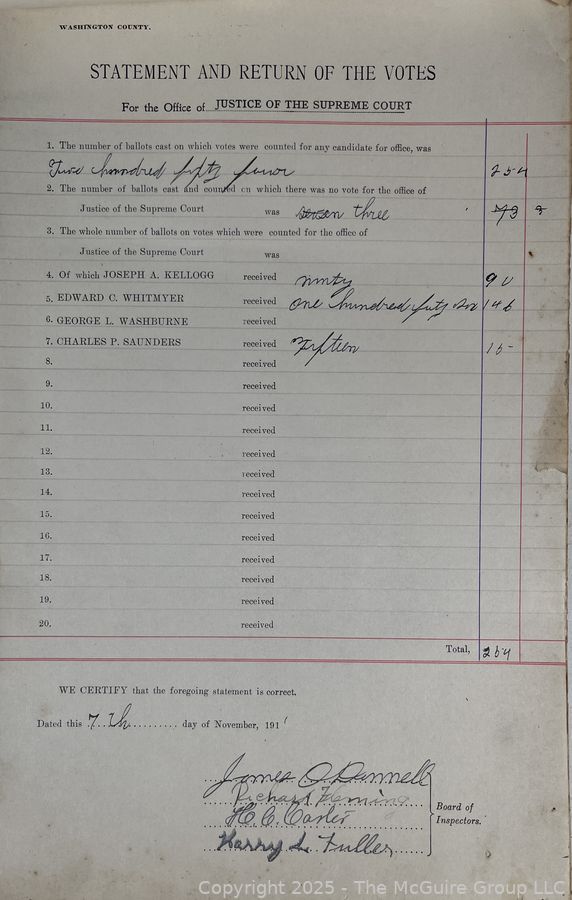 WASHINGTON COUNTY.
STATEMENT AND RETURN OF THE VOTES
For the Office of JUSTICE OF THE SUPREME COURT
1. The number of ballots cast on which votes were counted for any candidate for office, was
Two hundred fifty four 254
2. The number of ballots cast and counted on which there was no vote for the office of
Justice of the Supreme Court was three
3. The whole number of ballots on votes which were counted for the office of
Justice of the Supreme Court was
4. Of which JOSEPH A. KELLOGG received ninty 90
5. EDWARD C. WHITMYER received one hundred 146
6. GEORGE L. WASHBURNE received
7. CHARLES P. SAUNDERS received Fifteen 15
8. received
9. received
10. received
11. received
12. received
13. received
14. received
15. received
16. received
17. received
18. received
19. received
20. received
Total, 254
WE CERTIFY that the foregoing statement is correct.
Dated this 7th day of November, 1911
James O Donnell
Richard Fleming
H. C.
Harry L. Fuller
Board of
Inspectors.
Copyright 2025 - The McGuire Group LLC